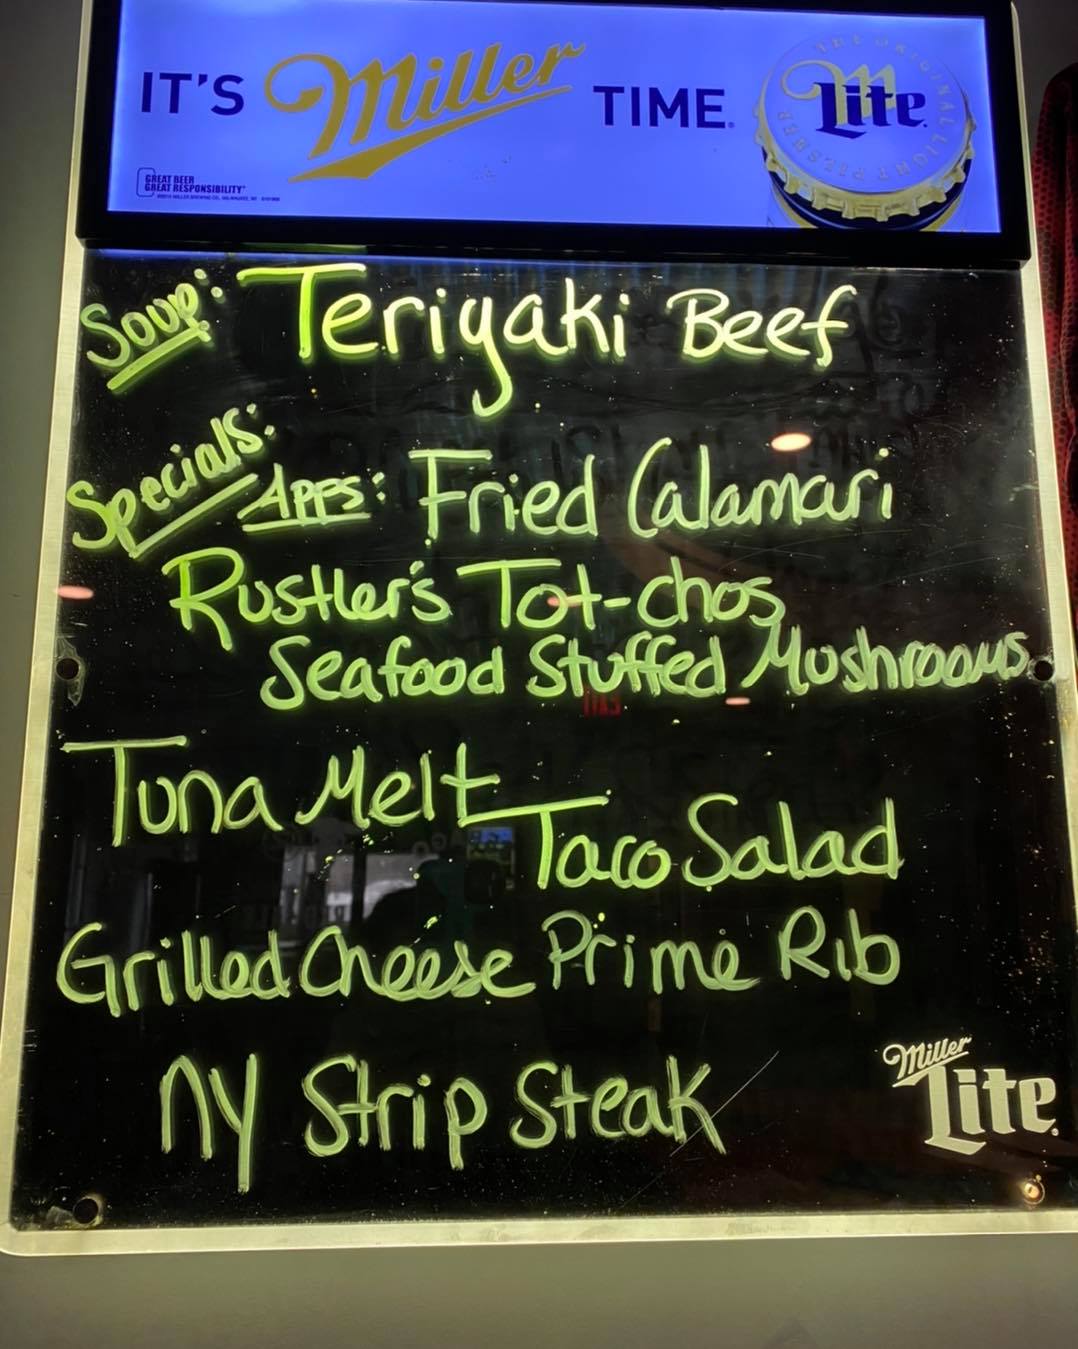 IT'S Miller TIME.
THE ORIGINAL LIGHT PILSNER
Lite
GREAT BEER
GREAT RESPONSIBILITY
Soup: Teriyaki Beef
Specials: APPS: Fried Calamari
Rustler's Tot-chos
Seafood Stuffed Mushrooms
Tuna Melt
Taco Salad
Grilled Cheese Prime Rib
NY Strip Steak
Miller
Lite